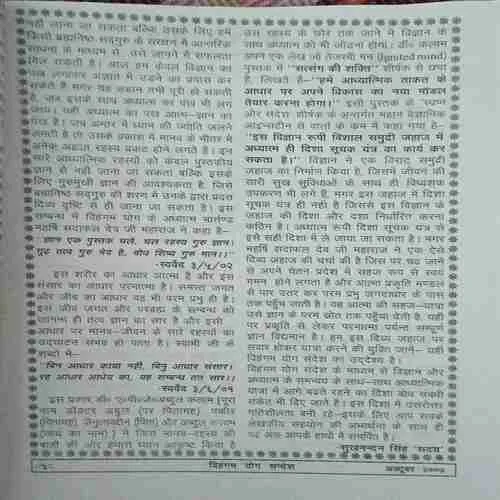 नहीं जाना जा सकता बल्कि उसके लिए हमें
किसी ब्रह्मनिष्ठ सद्गुरु के संरक्षण में आन्तरिक
साधना के माध्यम से उसे जानने में सफलता
मिल सकती है। आज हम केवल विज्ञान का
पंख लगाकर अज्ञात में उड़ने का प्रयास कर
सकते हैं मगर यह उड़ान तभी पूरी हो सकती
है, जब इसके साथ अध्यात्म का पंख भी लग
जाय। यही अध्यात्म का पंख आत्म-ज्ञान का
पंख है। जब अन्तर में ज्ञान की ज्योति जलने
लगती है तो उसके प्रकाश में मानव के भीतर में
अनेक अज्ञात रहस्य प्रकट होने लगते हैं। इन
सारे आध्यात्मिक रहस्यों को केवल पुस्तकीय
ज्ञान से नहीं जाना जा सकता बल्कि इसके
लिए गुरुमुखी ज्ञान की आवश्यकता है, जिसे
ब्रह्मनिष्ठ सद्गुरु की शरण में उनके द्वारा प्रदत्त
दिव्य दृष्टि से ही जाना जा सकता है। इस
सम्बन्ध में विहंगम योग के अध्यात्म मार्तण्ड
महर्षि सदाफल देव जी महाराज ने कहा है-
ज्ञान एक पुस्तक मले, चल रहस्य गुरु ज्ञान।
गूढ़ तत्व गुरु भेद है, बोध शिष्य गुरु मान।।''
स्वर्वेद ३/५/०२
इस शरीर का आधार आत्मा है और इस
संसार का आधार परमात्मा है। समस्त जगत
और जीव का आधार वह भी परम प्रभु ही है।
इस जीव जगत और परब्रह्म के सम्बन्ध को
जानना ही तत्व ज्ञान का सार है और इसी
आधार पर मानव-जीवन के सारे रहस्यों का
उद्घाटन संभव हो पाता है। स्वामी जी के
शब्दों में-
बिन आधार काया नहीं, बिनु आधार संसार।
रह आधार आधेय का, यह सम्बन्ध तत सार।।
स्वर्वेद ३/६/०१
इस प्रकार डॉ० ए०पी०जे०अब्दुल कलाम (पूरा
नाम डॉक्टर अबुल (पर पितामह) पकीर
(पितामह) जैनुलाबदीन (पिता) और अब्दुल कलाम
(स्वयं का नाम) ने जिस मानव-रहस्य की
बातों की ओर हमारा ध्यान आकृष्ट किया है
उस रहस्य के छोर तक जाने में विज्ञान के
साथ अध्यात्म को भी जोड़ना होगा। डॉ० कलाम
अपने एक लेख जो तेजस्वी मन (Ignited mind)
पुस्तक में ''सत्संग की शक्ति'' शीर्षक से छपा
है, लिखते हैं-''हमें आध्यात्मिक ताकत के
आधार पर अपने विकास का नया मॉडल
तैयार करना होगा।'' इसी पुस्तक के 'स्वप्न
और संदेश' शीर्षक के अन्तर्गत महान वैज्ञानिक
आइन्स्टीन से वार्ता के क्रम में कहा गया है-
''इस विज्ञान रूपी विशाल समुद्री जहाज में
अध्यात्म ही दिशा सूचक यंत्र का कार्य कर
सकता है।'' विज्ञान ने एक विराट समुद्री
जहाज का निर्माण किया है, जिसमें जीवन की
सारी सुख सुविधाओं के साथ ही विध्वंशक
उपकरण भी लगे हैं, मगर इस जहाज में दिशा
सूचक यंत्र ही नहीं है जिससे इस विज्ञान के
जहाज की दिशा और दशा निर्धारित करना
कठिन है। अध्यात्म रूपी दिशा सूचक यंत्र से
इसे सही दिशा में ले जाया जा सकता है। मगर
महर्षि सदाफल देव जी महाराज ने एक ऐसे
दिव्य जहाज की चर्चा की है जिस पर चढ़ जाने
से अपने चेतन प्रदेश में सहज रूप से स्वयं
गमन होने लगता है और आत्मा प्रकृति मण्डल
से पार उतर कर परम प्रभु जगदाधार के पास
तक पहुँच जाती है। यह आत्मा की सहज-यात्रा
उसे ज्ञान के परम स्रोत तक पहुँचा देती है, यहीं
पर प्रकृति से लेकर परमात्मा पर्यन्त सम्पूर्ण
ज्ञान विद्यमान है। हम इस दिव्य जहाज पर
सवार होकर यात्रा करने की युक्ति जानें- यही
विहंगम योग संदेश का उद्देश्य है।
विहंगम योग संदेश के माध्यम से विज्ञान और
अध्यात्म के समन्वय के साथ-साथ आध्यात्मिक
यात्रा में आगे बढ़ते रहने का दिशा बोध सम्बंधी
संकेत भी दिए जाते हैं। इस दिशा में उत्तरोत्तर
गतिशीलता बनी रहे-इसके लिए आप सबके
लेखकीय सहयोग की अभ्यर्थना के साथ ही
यह अंक आपके हाथों में समर्पित है।
सुखनन्दन सिंह 'सदय'
विहंगम योग सन्देश
अक्टूबर